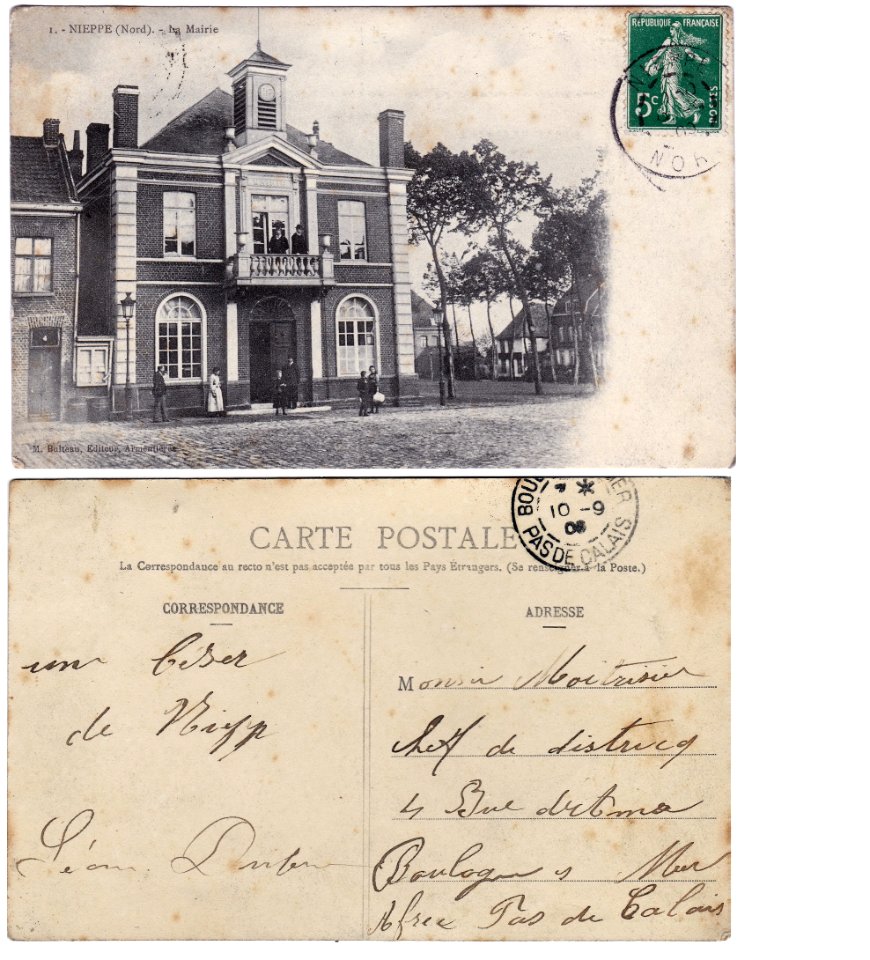 1. - NIEPPE (Nord). - La Mairie
RÉPUBLIQUE FRANÇAISE
5c
POSTES
NOR
M. Bulteau, Editeur, Armentières
10 - 9
PAS DE CALAIS
CARTE POSTALE
La Correspondance au recto n'est pas acceptée par tous les Pays Étrangers. (Se renseigner à la Poste.)
CORRESPONDANCE
ADRESSE
un
de Niepp
Léon
Monsir Moitrisier
chef de districq
4 Rue
Boulogn s Mer
Pas de Calais